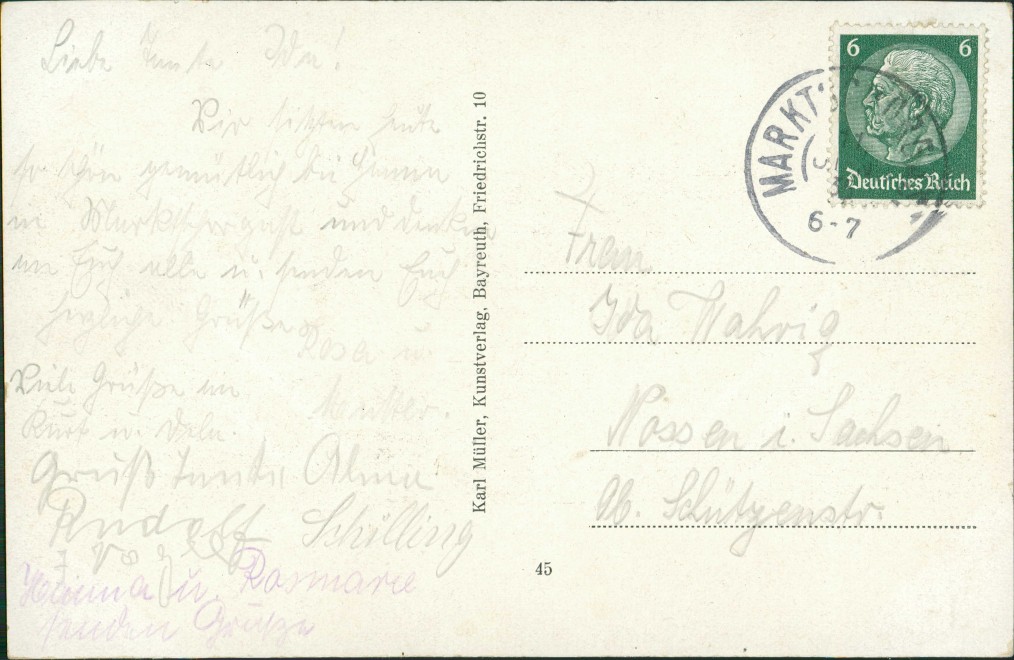 Liebe Tante Ida!
Wir sitzen heute
so schön gemütlich bei
in Marktschorgast und denken
an Euch alle u. senden Euch
herzliche Grüße
Rosa u.
Mutter.
Viele Grüße an
Kurt u.
Gruß Tante Alma
Rudolf Schilling
u. Rosmarie
senden Grüße
Karl Müller, Kunstverlag, Bayreuth, Friedrichstr. 10
45
6 6
Deutsches Reich
MARKT
6-7
Frau
Ida Wahrig
Nossen i. Sachsen
Ob. Schützenstr.